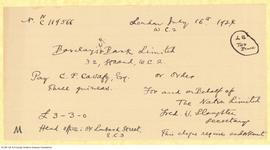 N. N/C 119566 London July 16th 1924
W.C.2
Barclays Bank Limited
32, Strand, W.C.2.
Pay C. P. Cavafy, Esq. or Order
Three guineas.
For and on Behalf of
The Nation Limited
£3-3-0
Fred W. Slaughter
Secretary
Head office: 54 Lombard Street,
E.C.3
This cheque requires endorsement